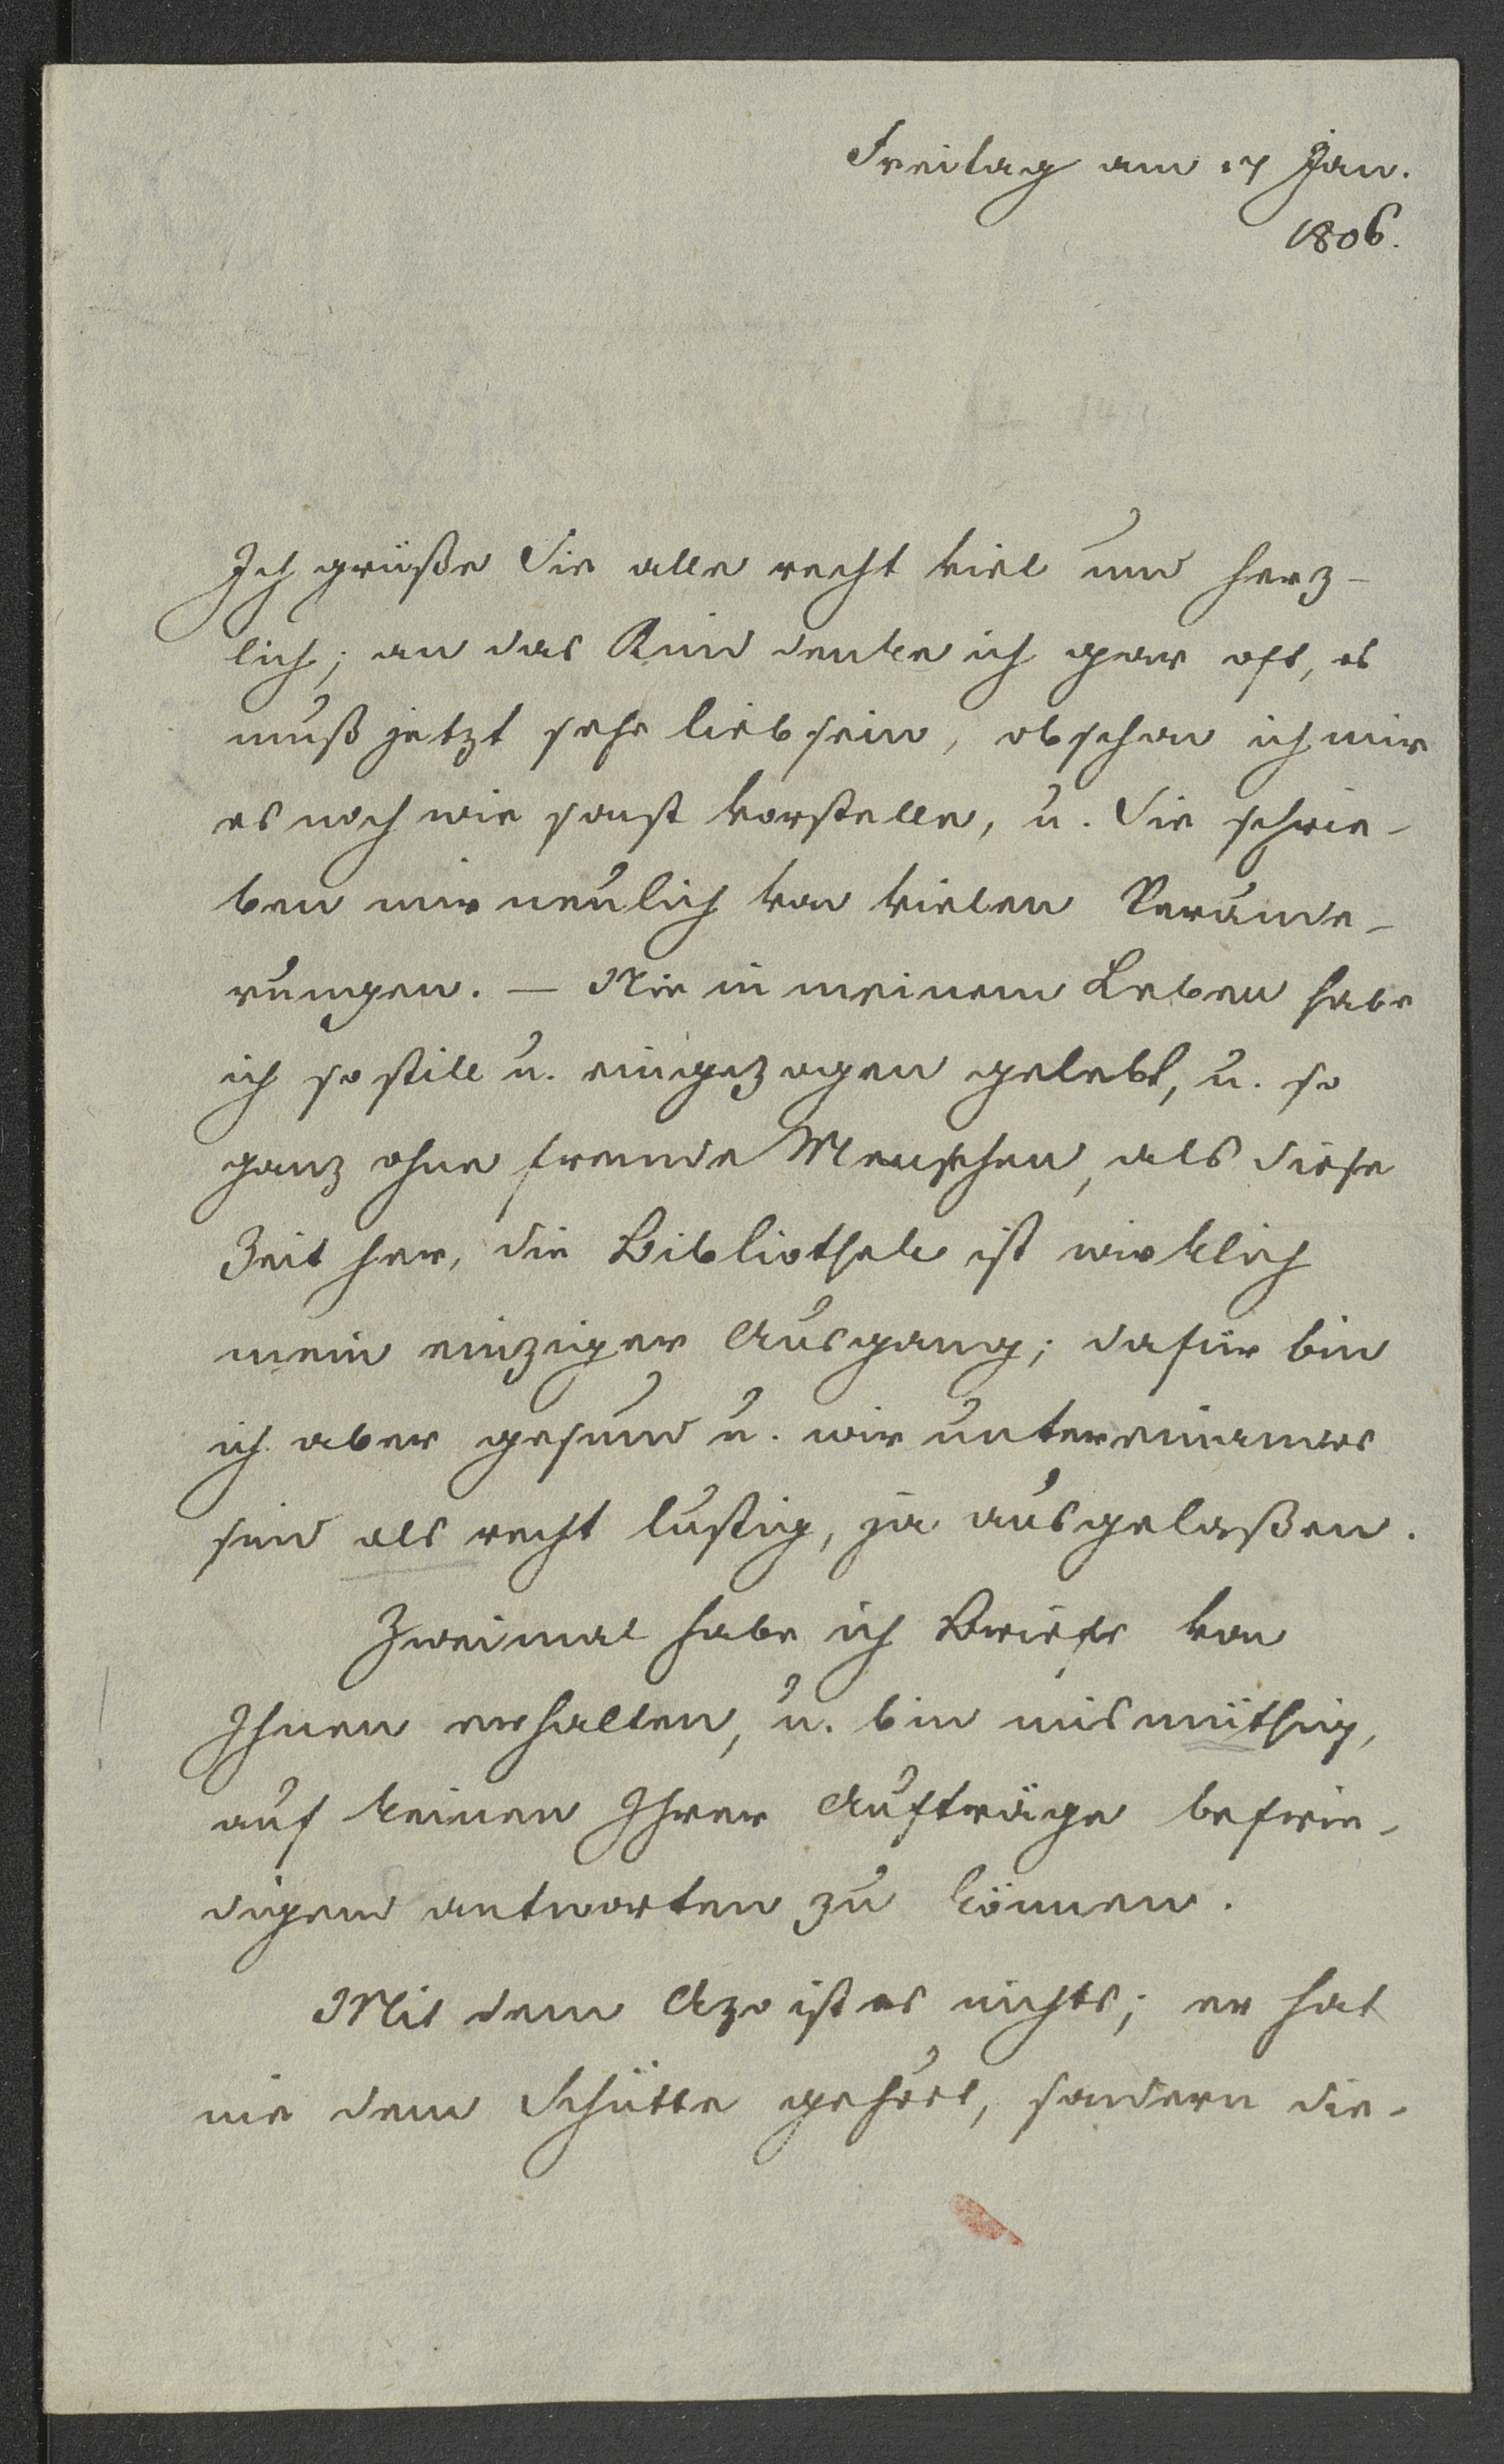 Freitag am 17 Jan.
1806.
Ich grüße Sie alle recht viel und herz-
lich; an das Kind denke ich gar oft, es
muß jetzt sehr lieb sein, obschon ich mir
es noch wie sonst vorstelle, u. Sie schrie-
ben mir neulich von vielen Verände-
rungen. — Nie in meinem Leben habe
ich so still u. eingezogen gelebt, u. so
ganz ohne fremde Menschen, als diese
Zeit her, die Bibliothek ist wirklich
mein einziger Ausgang; dafür bin
ich aber gesund u. wir untereinander
sind als recht lustig, ja ausgelaßen.
Zweimal habe ich Briefe von
Ihnen erhalten, u. bin mismüthig,
auf keinen Ihrer Aufträge befrie-
digend antworten zu können.
Mit dem Azo ist es nichts; er hat
nie dem Schütte gehört, sondern die-